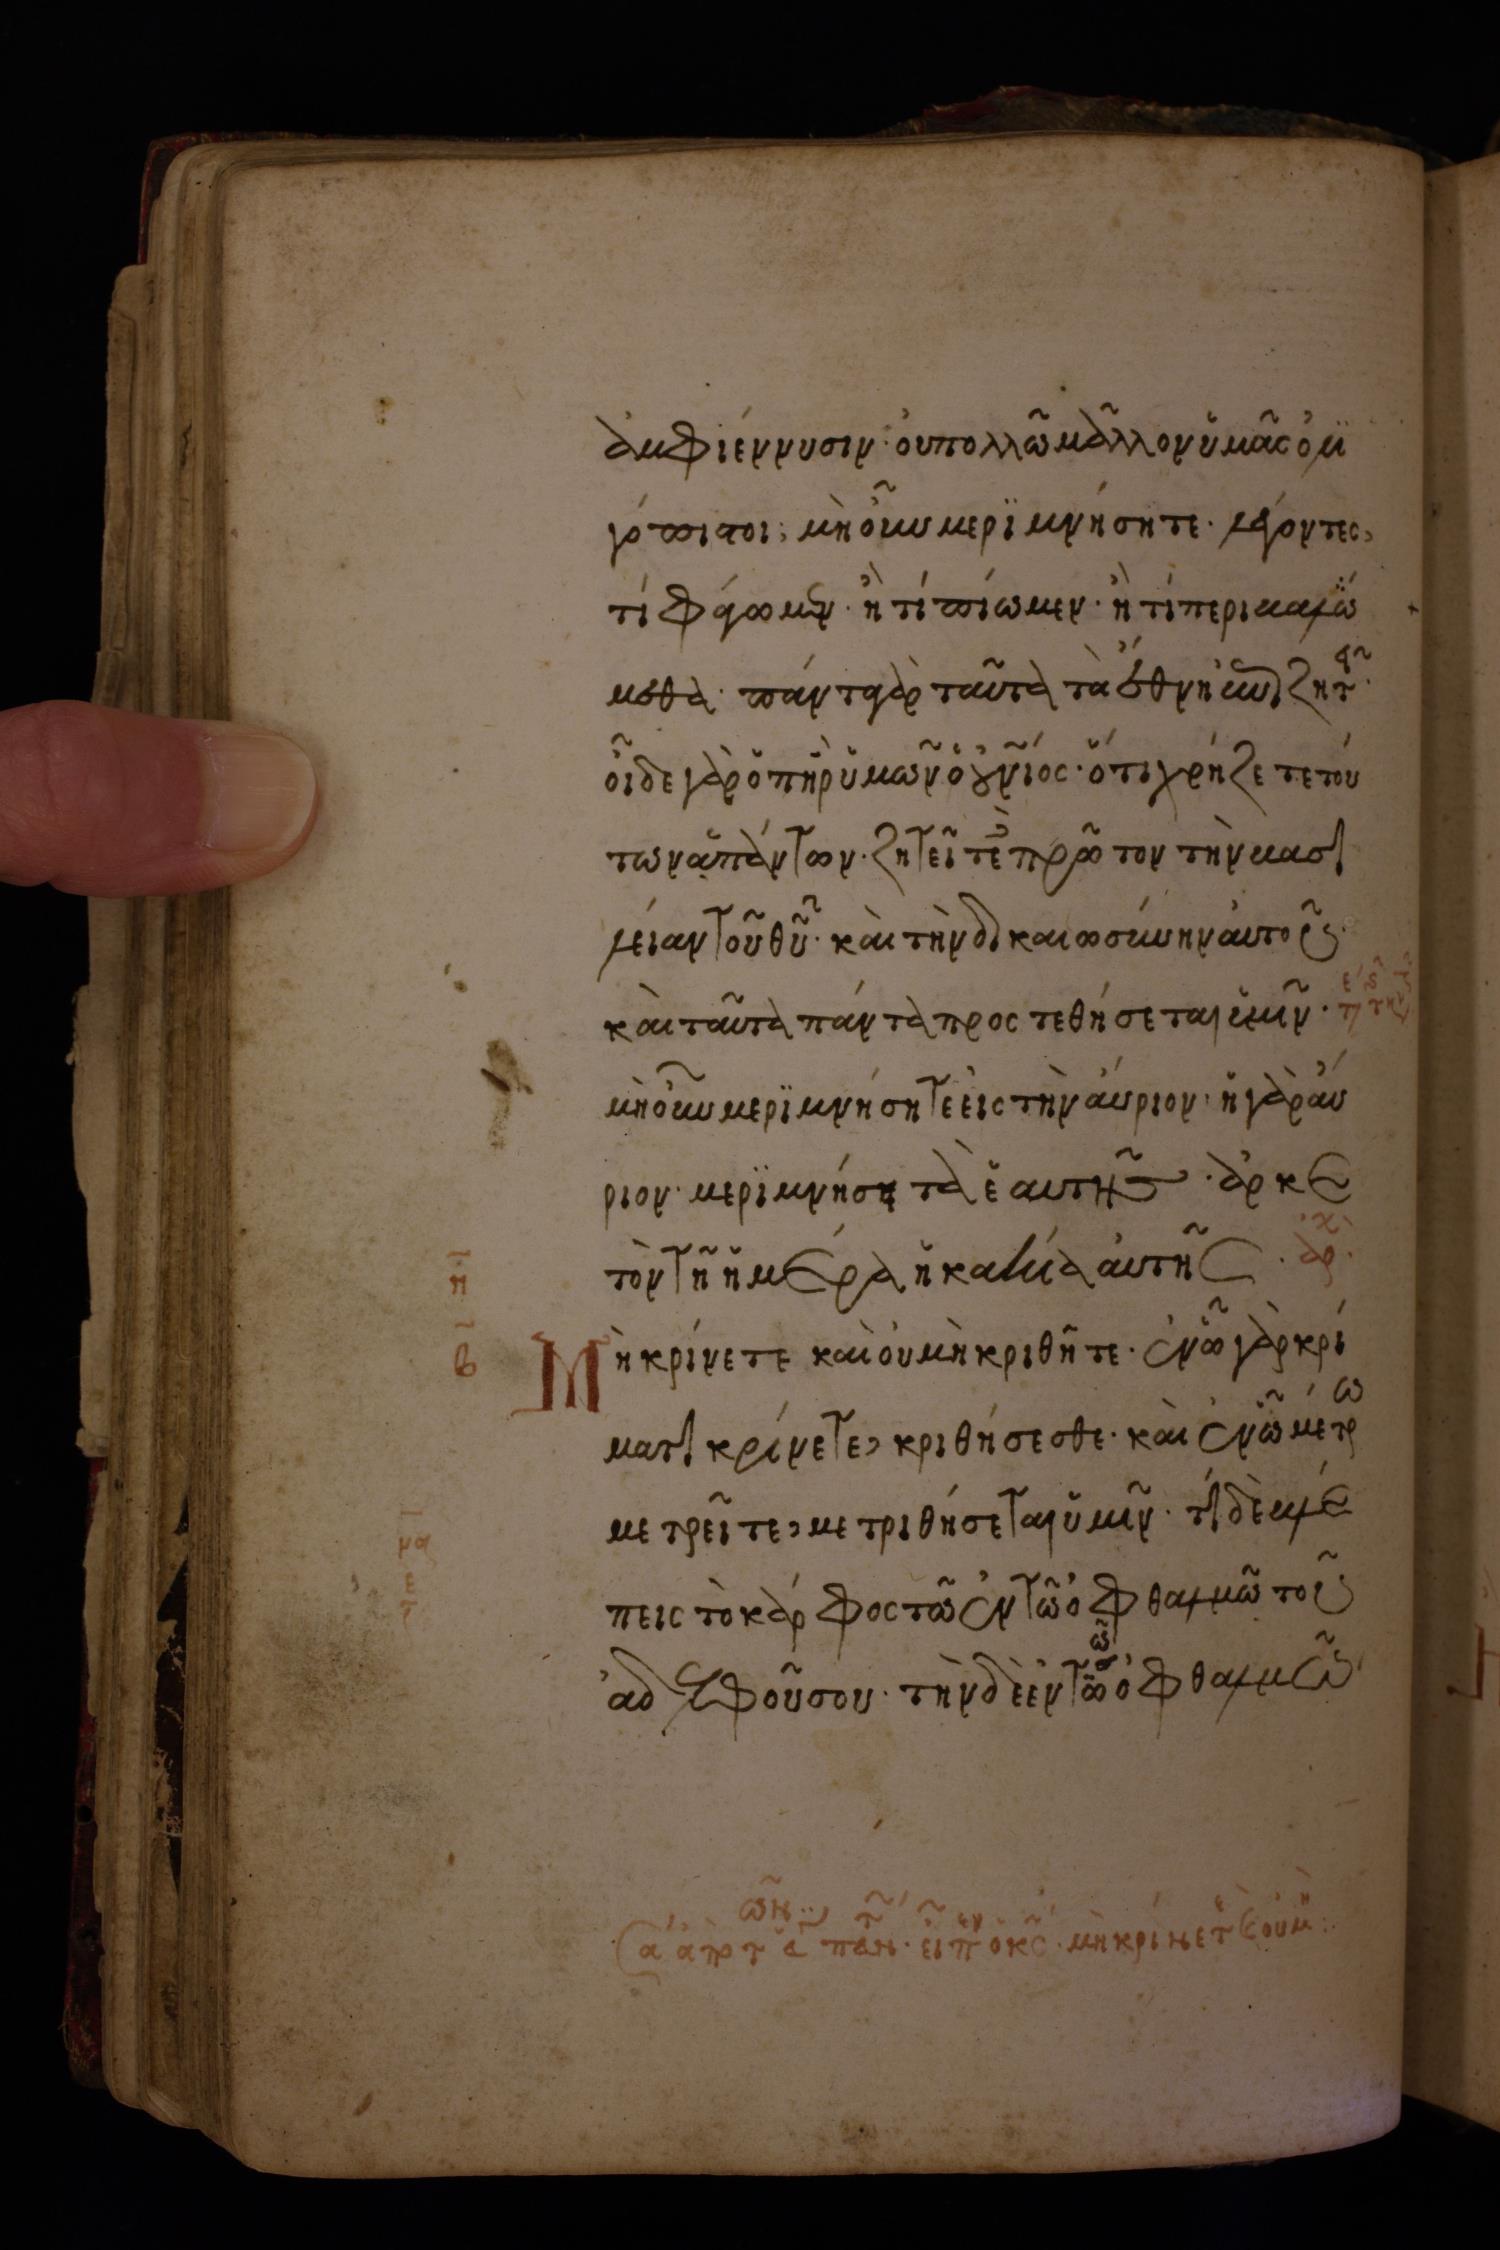 ἀμφιέννυσιν· οὐ πολλῶ μᾶλλον ὑμᾶς ὀλι
γόπιστοι; μὴ οὖν μεριμνήσητε· λέγοντες,
τί φάγωμεν· ἢ τί πίωμεν· ἢ τί περιβαλώ
μεθα· πάντα γὰρ ταῦτα τὰ ἔθνη ἐπιζητεῖ·
οἶδε γὰρ ὁ πηρ ὑμῶν ὁ οὐνιος· ὅτι χρήζετε τού
των ἁπάντων· ζητεῖτε δὲ πρῶτον τὴν βασι
λείαν τοῦ θυ· καὶ τὴν δικαιοσύνην αὐτοῦ·
καὶ ταῦτα πάντα προστεθήσεται ὑμῖν·
μὴ οὖν μεριμνήσητε εἰς τὴν αὔριον· ἡ γὰρ αὔ
ριον· μεριμνήσει τὰ ἑαυτῆς· ἀρκε
τὸν τῆ ἡμέρα ἡ κακία αὐτῆς·
η
β
Μὴ κρίνετε καὶ οὐ μὴ κριθῆτε· ἐν ᾧ γὰρ κρί
ματι κρίνετε, κριθήσεσθε· καὶ ἐν ᾧ μέτρω
μετρεῖτε, μετρηθήσεται ὑμῖν· τί δὲ βλέ
πεις τὸ κάρφος τῶ ἐν τῶ ὀφθαλμῶ τοῦ
ἀδελφοῦ σου· τὴν δὲ ἐν τῶ σῶ ὀφθαλμῶ
μὴ κρίνετ οὐ μὴ